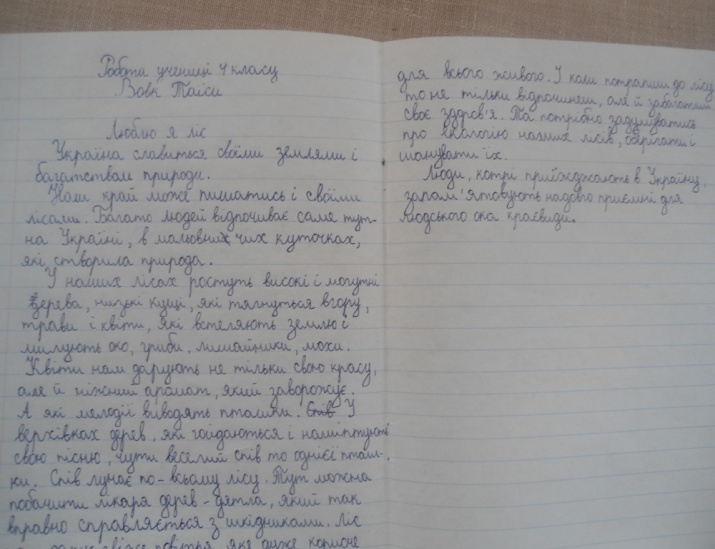 Робота учениці 4 класу
Вовк Таїси
Люблю я ліс
Україна славиться своїми землями і
багатством природи.
Наш край може пишатись і своїми
лісами. Багато людей відпочиває саме тут-
на Україні, в мальовничих куточках,
які створила природа.
У наших лісах ростуть високі і могутні
дерева, низькі кущі, які тягнуться вгору,
трави і квіти, які встеляють землю і
милують око, гриби, лишайники, мохи.
Квіти нам дарують не тільки свою красу,
але й ніжний аромат, який заворожує.
А які мелодії виводять пташки. Спів У
верхівках дерев, які гойдаються і нашіптують
свою пісню, чути веселий спів то однієї пташ-
ки. Спів лунає по-всьому лісу. Тут можна
побачити лікаря дерев-дятла, який так
вправно справляється з шкідниками. Ліс
свіже повітря, яке дуже корисне
для всього живого. І коли потрапиш до лісу
то не тільки відпочинеш, але й збагатиш
своє здоров'я. Та потрібно задумуватись
про екологію наших лісів, оберігати і
шанувати їх.
Люди, котрі приїжджають в Україну,
запам'ятовують надовго приємні для
людського ока краєвиди.